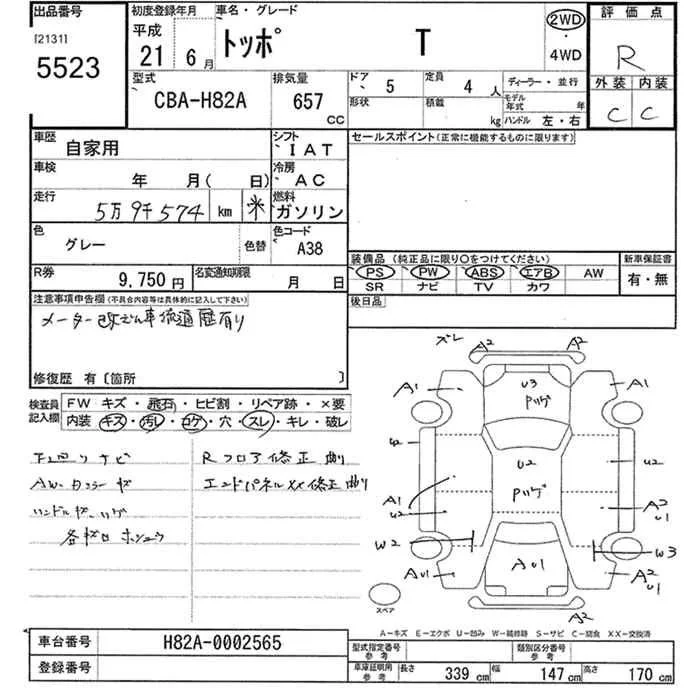 出品番号 初度登録年月 車名・グレード 2WD 評価点
[2131] 平成
5523 21年 6月 トッポ T ・ R
4WD
型式 排気量 ドア 5 定員 4人 ディーラー・並行 外装 内装
CBA-H82A 657 CC 形状 積載 kg モデル年式 年 C C
ハンドル 左・右
車歴 自家用 シフト IAT セールスポイント(正常に機能するものに限ります)
車検 年 月( 日) 冷房 AC
走行 5万9千574 km ※ 燃料 ガソリン
色 グレー 色替 色コード A38
装備品 (純正品に限り○をつけてください) 新車保証書
R券 9,750円 名変通知期限 月 日 PS PW ABS エアB AW 有・無
SR ナビ TV カワ
注意事項申告欄(不具合内容等は具体的に記入して下さい) 後日品
メーター改ざん車流通歴有り
修復歴 有〔箇所 〕
検査員記入欄 FW キズ・飛石・ヒビ割・リペア跡・×要
内装 キズ・汚レ・コゲ・穴・スレ・キレ・破レ
ナビ Rフロア修正
AW エンドパネルXX修正
ズレ A2 A2
A1 U3 A1
U2 U2 U2
A1 A2
U2 U1
W2 W3
AU1 AU1 A2
U1
スペア A2
A-キズ E-エクボ U-凹み W-補修跡 S-サビ C-腐食 XX-交換済
車台番号 H82A-0002565 型式指定番号 参考 類別区分番号 参考
登録番号 車庫証明用 参考 長さ 339cm 幅 147cm 高さ 170cm